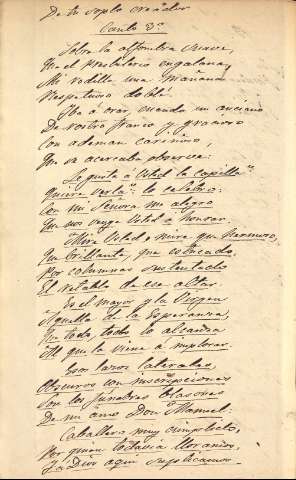 De tu soplo creador
Canto 3º
Sobre la alfombra suave,
Que el Presbiterio engalana,
Mi rodilla una mañana
Respetuoso doblé.
Iba á orar, cuando un anciano
De rostro franco y gracioso
Con ademan cariñoso,
Que se acercaba observé.
Le gusta á Usted la capilla?
Quiere verla? lo celebro:
Con mi Señora me alegro
Que nos venga Usted á honrar.
Mire Usted, mire que hermoso,
Que brillante, que estucado,
Por columnas sustentado
El retablo de ese altar.
Es el mayor y la Virgen
Aquella de la Esperanza,
Que todo, todo lo alcanza
Al que la viene á implorar.
Esos laterales
Obscuros con inscripciones
Son los fúnebres blasones
De mi amo Don Manuel:
Caballero muy cumplido,
Por quien todavia lloramos,
Y á Dios aqui suplicamos